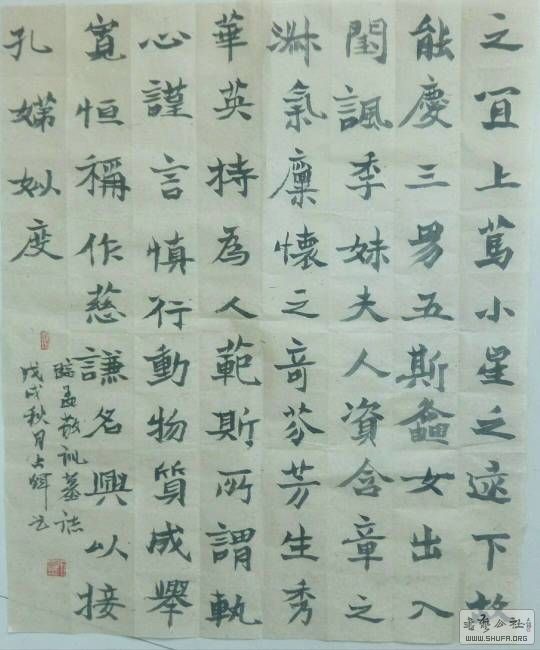 之冝上篤小星之逮下故
能慶三男五斯螽女出入
閨諷季妹夫人資含章之
淋氣廩懷之奇芬芳生秀
華英持為人範斯所謂軌
心謹言慎行動物質成舉
寬恒稱作慈謙名興以接
孔娣姒度
臨孟敬訓墓誌
戊戌秋月占輝书
书艺公社
WWW.SHUFA.ORG